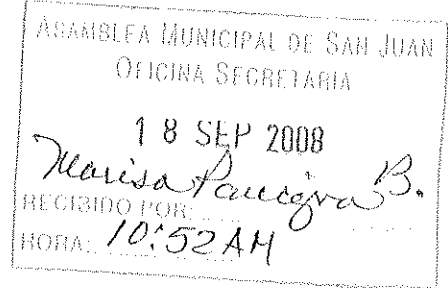 ASAMBLEA MUNICIPAL DE SAN JUAN
OFICINA SECRETARIA
18 SEP 2008
Marisa B.
RECIBIDO POR:
HORA: 10:52 AM